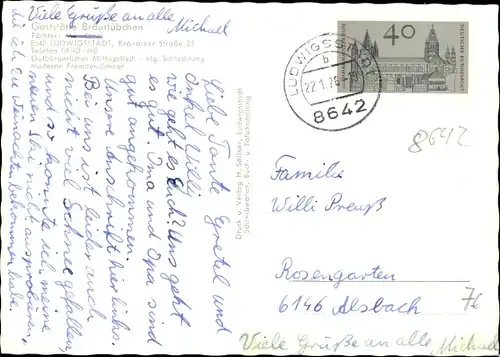 Viele Grüße an alle Michael
Gaststätte Braustübchen
Pächter:
8642 LUDWIGSSTADT, Kronacher Straße 23
Telefon 09263-490
Gutbürgerlicher Mittagstisch - eig. Schlachtung
moderne Fremdenzimmer
Liebe Tante Gretel und
Onkel Willi,
wie geht es Euch? Uns geht
es gut. Oma und Opa sind
gut angekommen.
Unsere Anschrift hier links.
Bei uns ist leider auch
nicht viel Schnee gefallen,
und so konnte ich meine
neuen Ski nicht ausprobieren,
die ich zu Weihnachten bekommen habe.
Druck u. Verlag H. Ludwigsstadt
Schreibwaren, Buch- u. Fotohandlung
LUDWIGSSTADT
b
22.1.76
8642
40
DEUTSCHE BUNDESPOST
8642
Familie
Willi Preuß
Rosengarten
6146 Alsbach
Viele Grüße an alle Michael